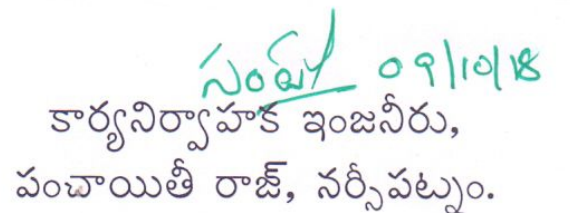 09/10/18
కార్యనిర్వాహక ఇంజనీరు,
పంచాయితీ రాజ్, నర్సీపట్నం.